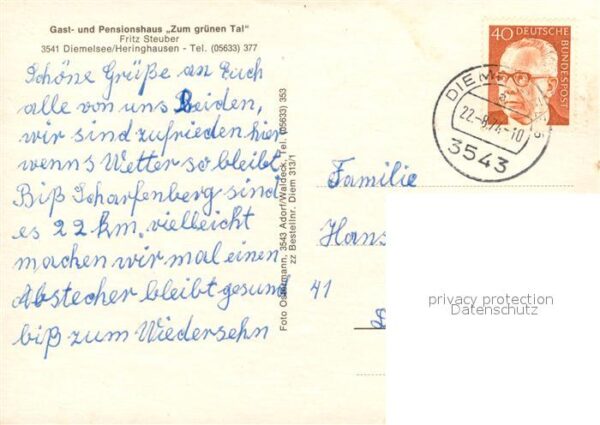 Gast- und Pensionshaus „Zum grünen Tal"
Fritz Steuber
3541 Diemelsee/Heringhausen - Tel. (05633) 377
Schöne Grüße an Euch
alle von uns Beiden,
wir sind zufrieden hier
wenns Wetter so bleibt.
Biß Scharfenberg sind
es 22 km. vielleicht
machen wir mal einen
Abstecher bleibt gesund
biß zum Wiedersehn
Foto Ostermann, 3543 Adorf/Waldeck, Tel. (05633) 353
zz Bestellnr. Diem 313/1
40 DEUTSCHE
BUNDESPOST
22.-8.74-10
3543
Familie
Hans
41
privacy protection
Datenschutz